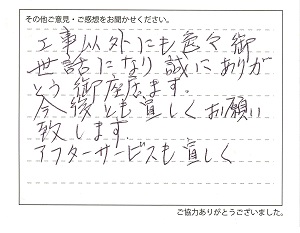 その他ご意見・ご感想をお聞かせください。
工事以外にも色々御
世話になり誠にありが
とう御座居ます。
今後とも宜しくお願い
致します。
アフターサービスも宜しく
ご協力ありがとうございました。